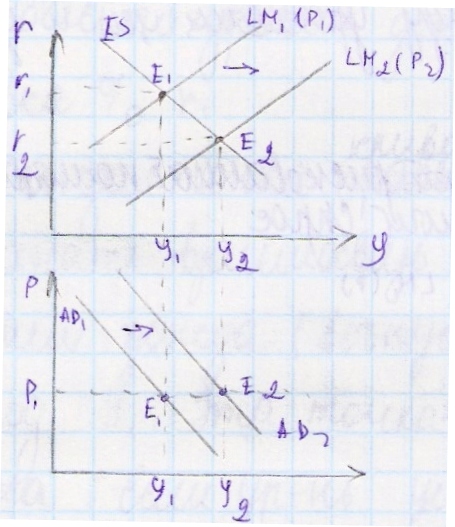 r IS LM₁(P₁)
r₁ E₁ LM₂(P₂)
r₂ E₂
y₁ y₂ y
P
AD₁
P₁ E₁ E₂
AD₂
y₁ y₂